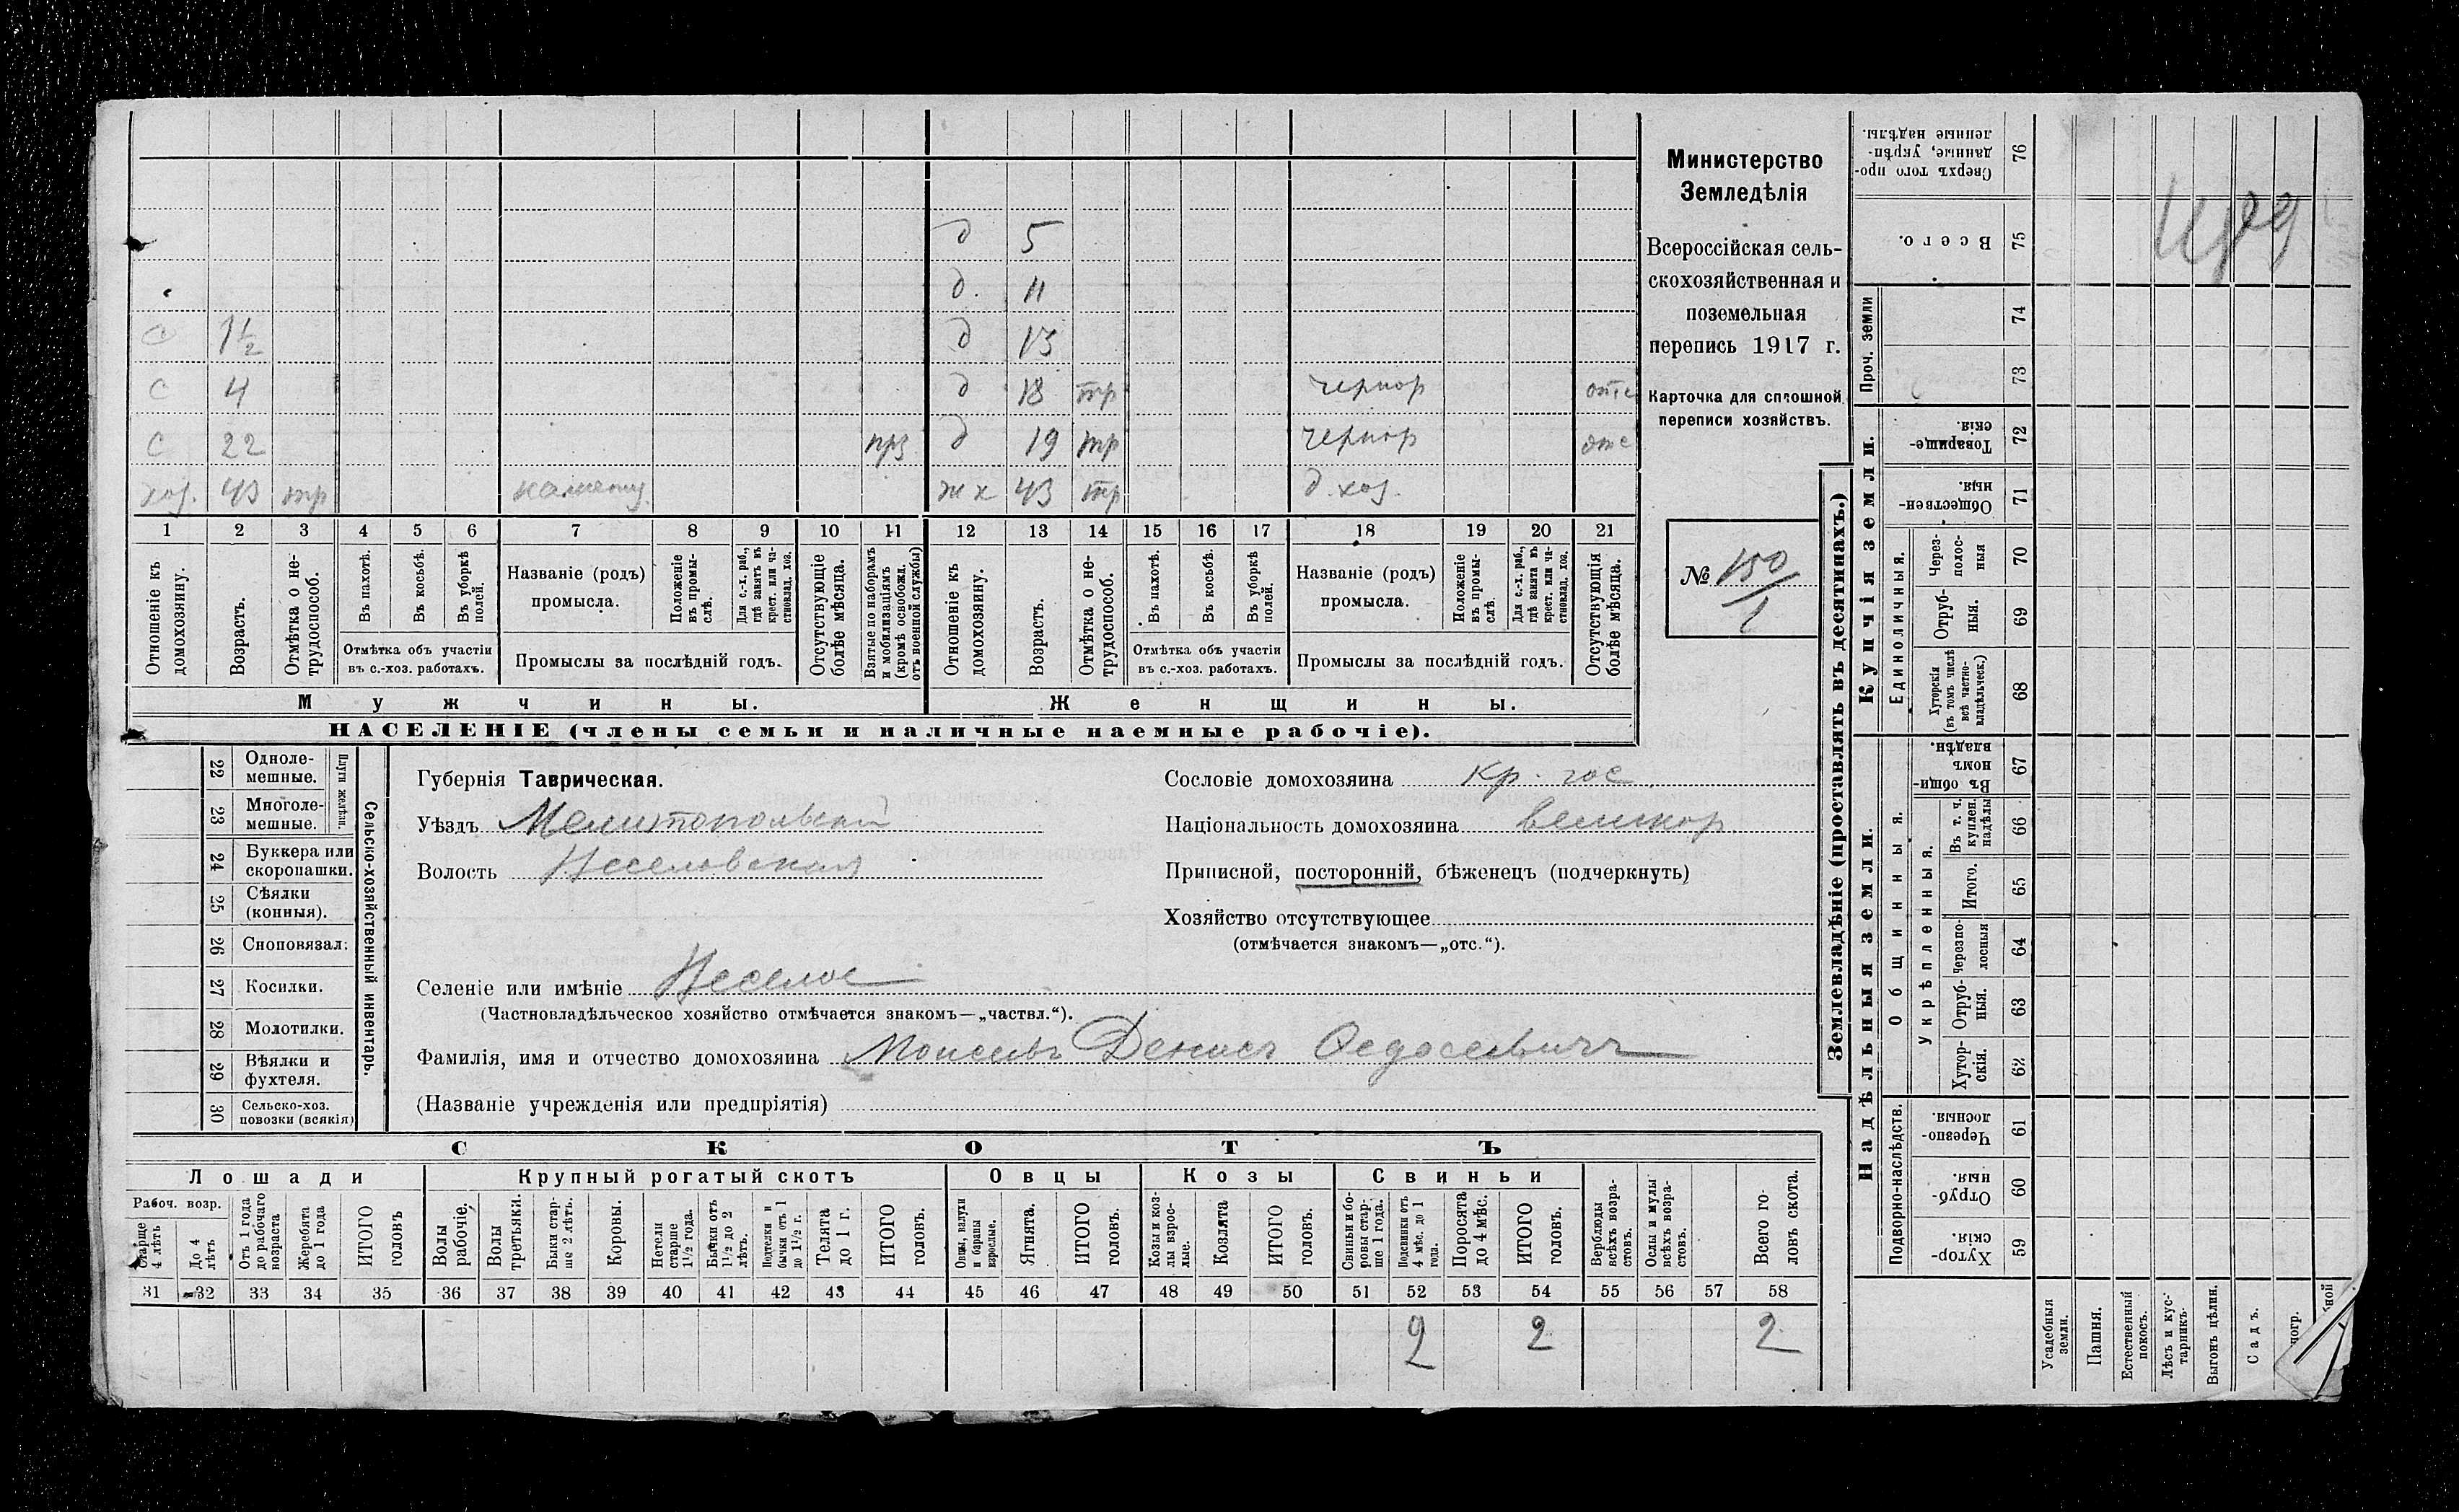 д 5
д. 11
с 1½ д 13
с 4 д 18 тр чернор отс
с 22 прз д 19 тр чернор отс
хоз. 43 тр каменщ. ж х 43 тр д. хоз.
1 2 3 4 5 6 7 8 9 10 11 12 13 14 15 16 17 18 19 20 21
Отношеніе къ домохозяину.
Возрастъ.
Отмѣтка о не-трудоспособ.
Въ пахотѣ.
Въ косьбѣ.
Въ уборкѣ полей.
Отмѣтка объ участіи
въ с.-хоз. работахъ.
Названіе (родъ)
промысла.
Положеніе въ промы-слѣ.
Для с.-х. раб., гдѣ занятъ въ крест. или ча-стновлад. хоз.
Промыслы за послѣдній годъ.
Отсутствующіе болѣе мѣсяца.
Взятые по наборамъ и мобилизаціямъ (кромѣ освобожд. отъ военной службы)
Отношеніе къ домохозяину.
Возрастъ.
Отмѣтка о не-трудоспособ.
Въ пахотѣ.
Въ косьбѣ.
Въ уборкѣ полей.
Отмѣтка объ участіи
въ с.-хоз. работахъ.
Названіе (родъ)
промысла.
Положеніе въ промы-слѣ.
Для с.-х. раб., гдѣ занята въ крест. или ча-стновлад. хоз.
Промыслы за послѣдній годъ.
Отсутствующія болѣе мѣсяца.
Мужчины. Женщины.
НАСЕЛЕНІЕ (члены семьи и наличные наемные рабочіе).
Министерство
Земледѣлія
Всероссійская сель-
скохозяйственная и
поземельная
перепись 1917 г.
Карточка для сплошной
переписи хозяйствъ.
№ 150/1
22 Одноле-мешные.
23 Многоле-мешные.
Плуги желѣзн.
24 Буккера или скоропашки.
25 Сѣялки (конныя).
26 Сноповязал.
27 Косилки.
28 Молотилки.
29 Вѣялки и фухтеля.
30 Сельско-хоз. повозки (всякія)
Сельско-хозяйственный инвентарь.
Губернія Таврическая.
Уѣздъ Мелитопольскій
Волость Веселовская
Сословіе домохозяина кр. гос
Національность домохозяина великор
Приписной, посторонній, бѣженецъ (подчеркнуть)
Хозяйство отсутствующее
(отмѣчается знакомъ—„отс.“).
Селеніе или имѣніе Веселое
(Частновладѣльческое хозяйство отмѣчается знакомъ—„частвл.“).
Фамилія, имя и отчество домохозяина Моисеевъ Денисъ Федосеевичъ
(Названіе учрежденія или предпріятія)
СКОТЪ
Лошади Крупный рогатый скотъ Овцы Козы Свиньи
Рабоч. возр.
Старше 4 лѣтъ
До 4 лѣтъ
Отъ 1 года до рабочаго возраста
Жеребята до 1 года
ИТОГО головъ
Волы рабочіе.
Волы третьяки.
Быки стар-ше 2 лѣтъ.
Коровы.
Нетели старше 1½ года.
Бычки отъ 1½ до 2 лѣтъ.
Подтелки и бычки отъ 1 до 1½ г.
Телята до 1 г.
ИТОГО головъ.
Овцы, валухи и бараны взрослые.
Ягнята.
ИТОГО головъ.
Козы и коз-лы взрос-лые.
Козлята
ИТОГО головъ.
Свиньи и бо-ровы стар-ше 1 года.
Подсвинки отъ 4 мѣс. до 1 года.
Поросята до 4 мѣс.
ИТОГО головъ.
Верблюды всѣхъ возра-стовъ.
Ослы и мулы всѣхъ возра-стовъ.
Всего го-ловъ скота.
31 32 33 34 35 36 37 38 39 40 41 42 43 44 45 46 47 48 49 50 51 52 53 54 55 56 57 58
2 2 2
Землевладѣніе (проставлять въ десятинахъ.)
Купчія земли.
Надѣльныя земли.
Проч. земли
Сверхъ того про-данные, укрѣп-ленные надѣлы. 76
Всего. 75
74
73
Товарище-скія. 72
Обществен-ныя. 71
Единоличныя.
Через-полос-ныя 70
Отруб-ныя. 69
Хуторскія (въ томъ числѣ всѣ частно-владѣльческ.) 68
Общинныя.
Въ общин-номъ владѣн. 67
Укрѣпленныя.
Въ т. ч. куплен. надѣлы 66
Итого. 65
Черезпо-лосныя 64
Отруб-ныя. 63
Хутор-скія. 62
Подворно-наслѣдств.
Черезпо-лосныя. 61
Отруб-ныя. 60
Хутор-скія. 59
Усадебныя земли.
Пашня.
Естественный покосъ.
Лѣсъ и кус-тарникъ.
Выгонъ цѣлин.
Садъ.